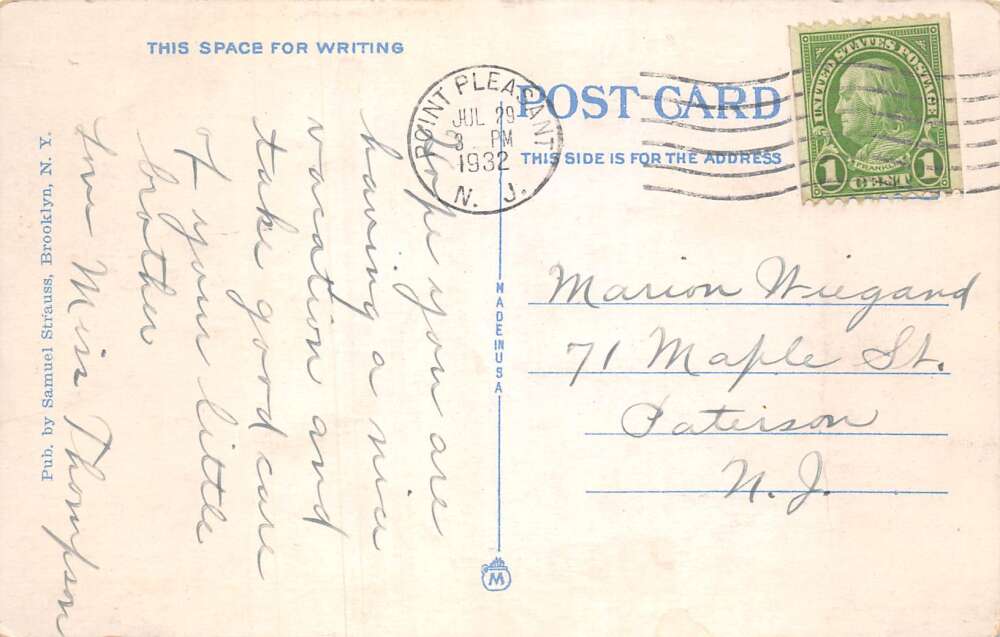 THIS SPACE FOR WRITING
Hope you are
having a nice
vacation and
take good care
of your little
brother
Love Miss Thompson
Pub. by Samuel Strauss, Brooklyn, N. Y.
POINT PLEASANT
JUL 29
3 PM
1932
N. J.
POST CARD
THIS SIDE IS FOR THE ADDRESS
UNITED STATES POSTAGE
FRANKLIN
1 CENT 1
MADE IN USA
Marion Wiegand
71 Maple St.
Paterson
N. J.
M